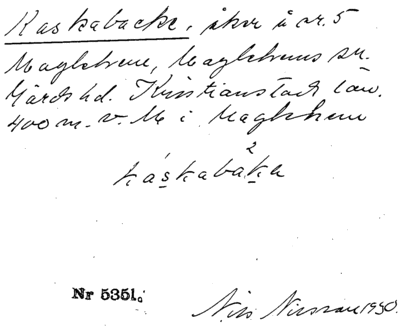 Kaskabacke, åker å nr. 5
Maglehem, Maglehems sn.
Gärds hd. Kristianstads län.
400 m. v. M i Maglehem
2
káskabaka
Nr 5351.
Nils Nilsson 1930.